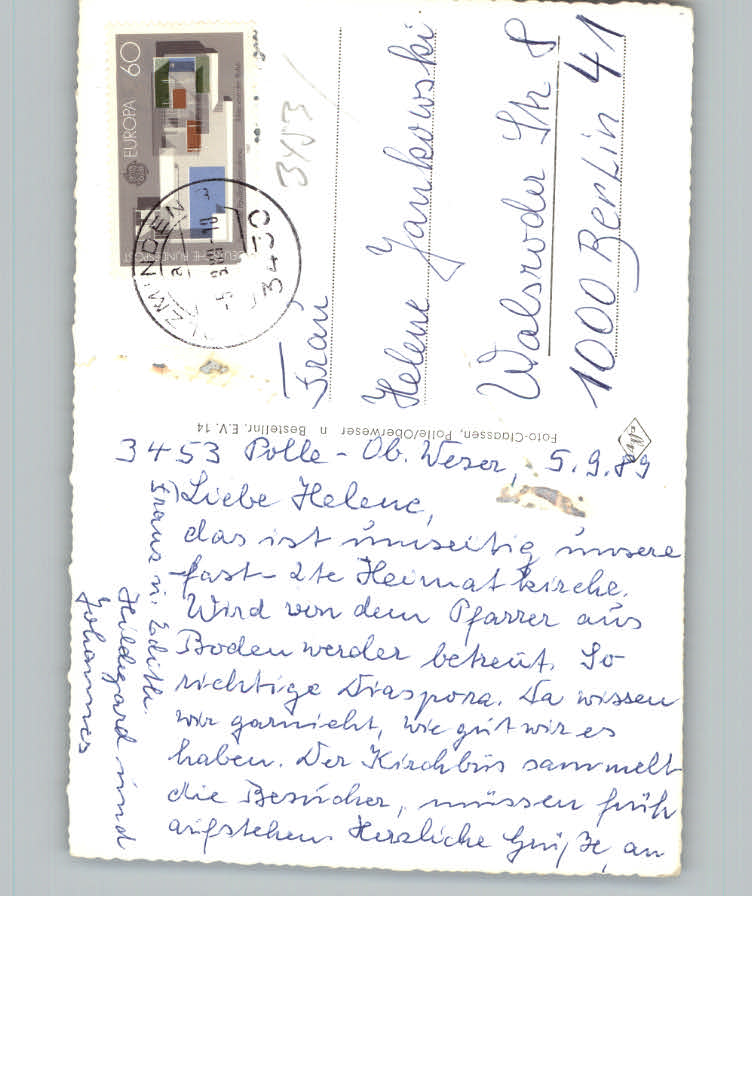 3453 Polle - Ob. Weser, 5.9.89
Liebe Helene,
das ist umseitig unsere
fast - 2te Heimatkirche.
Wird von dem Pfarrer aus
Bodenwerder betreut. So
richtige Diaspora. Da wissen
wir garnicht, wie gut wir es
haben. Der Kirchbus sammelt
die Besucher, müssen früh
aufstehen. Herzliche Grüße, an
Franz u. Edith.
Hildegard und
Johannes
Foto-Claassen, Polle/Oberweser n Bestellnr. E.V. 14
Frau
Helene Jankowski
Walsroder Str 8
1000 Berlin 41
3453
60
EUROPA
DEUTSCHE BUNDESPOST
3450